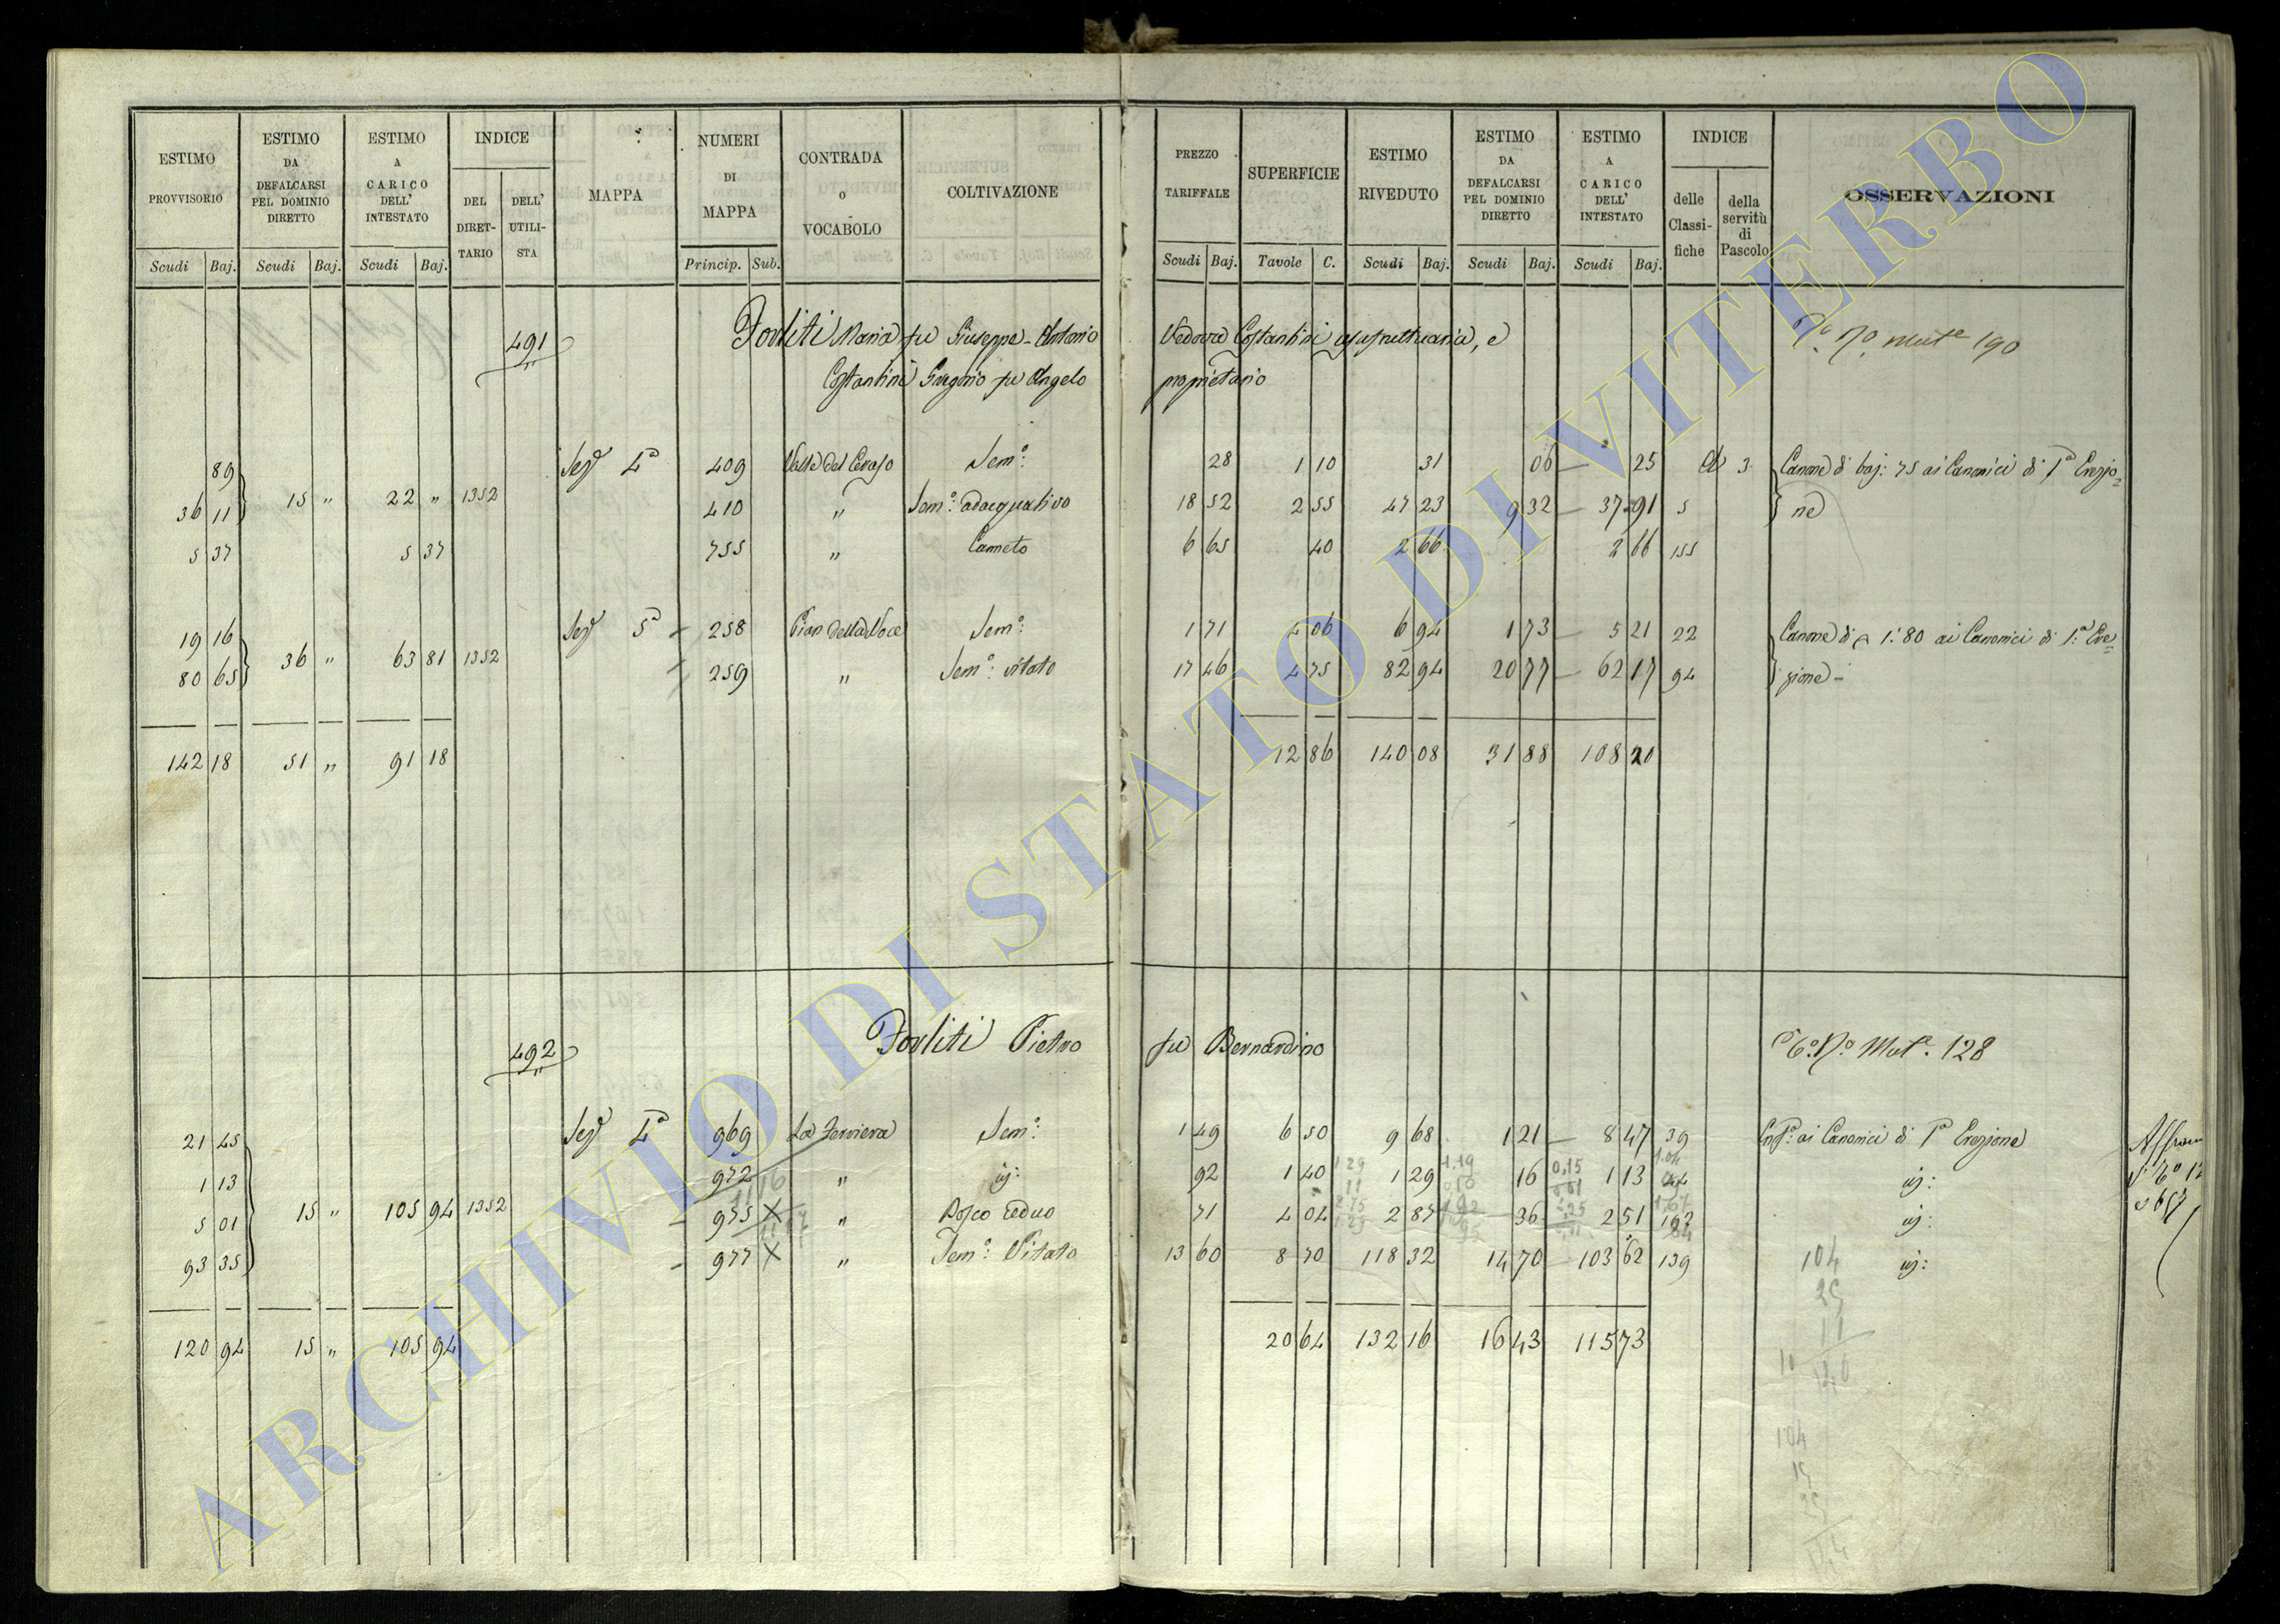 ESTIMO PROVVISORIO
Scudi Baj.
ESTIMO DA DEFALCARSI PEL DOMINIO DIRETTO
Scudi Baj.
ESTIMO A CARICO DELL' INTESTATO
Scudi Baj.
INDICE
DEL DIRET-TARIO
DELL' UTILI-STA
MAPPA
NUMERI DI MAPPA
Princip. Sub.
CONTRADA o VOCABOLO
COLTIVAZIONE
PREZZO TARIFFALE
Scudi Baj.
SUPERFICIE
Tavole C.
ESTIMO RIVEDUTO
Scudi Baj.
ESTIMO DA DEFALCARSI PEL DOMINIO DIRETTO
Scudi Baj.
ESTIMO A CARICO DELL' INTESTATO
Scudi Baj.
INDICE
delle Classi-fiche
della servitù di Pascolo
OSSERVAZIONI
491 Forliti Maria fu Giuseppe-Antonio Vedova Costantini usufruttuaria, e 190
Costantini Gregorio fu Angelo proprietario
89 Sez.e 4a 409 Valle del Ceraso Sem.o 28 1 10 31 06 25 3 Canone di baj: 75 ai Canonici di 1a Erezio=
36 11 15 " 22 " 1352 410 " Sem.o adacquativo 18 52 2 55 47 23 9 32 37 91 5 ne
5 37 5 37 755 " Canneto 6 65 40 2 66 2 66 155
19 16 Sez.e 5a 258 Pian della Noce Sem.o 1 71 4 06 6 94 1 73 5 21 22 Canone di 1:80 ai Canonici di 1.a Ere=
80 65 36 " 63 81 1352 259 " Sem.o vitato 17 46 4 75 82 94 20 77 62 17 94 zione
142 18 51 " 91 18 12 86 140 08 31 88 108 20
492 Forliti Pietro fu Bernardino Mut.e 128
21 45 Sez.e 4a 969 La Ferriera Sem.o 1 49 6 50 9 68 1 21 8 47 39 ai Canonici di 1a Erezione
1 13 972 " id: 92 1 40 1 29 16 1 13 44 id:
5 01 15 " 105 94 1352 975 X " Bosco Ceduo 71 4 04 2 87 36 2 51 id:
93 35 977 X " Sem.o Vitato 13 60 8 70 118 32 14 70 103 62 139 id:
120 94 15 " 105 94 20 64 132 16 16 43 115 73
104
25
104
ARCHIVIO DI STATO DI VITERBO